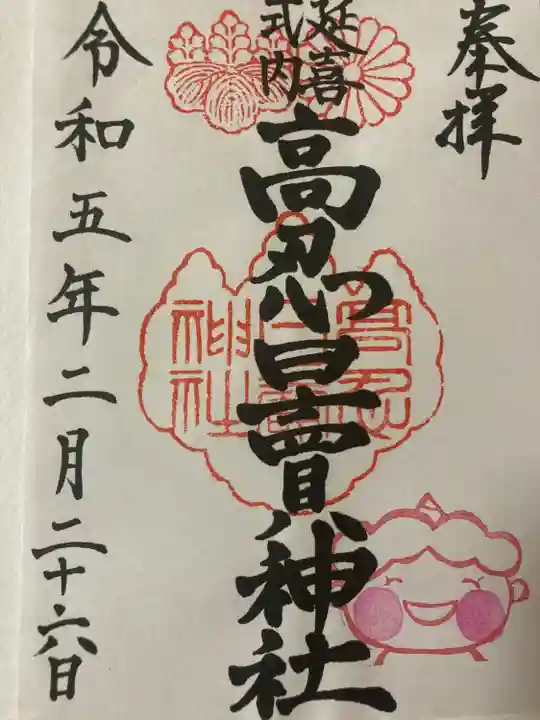 奉拝
延喜
式内
高忍日賣神社
令和五年二月二十六日
高忍
日賣
神社